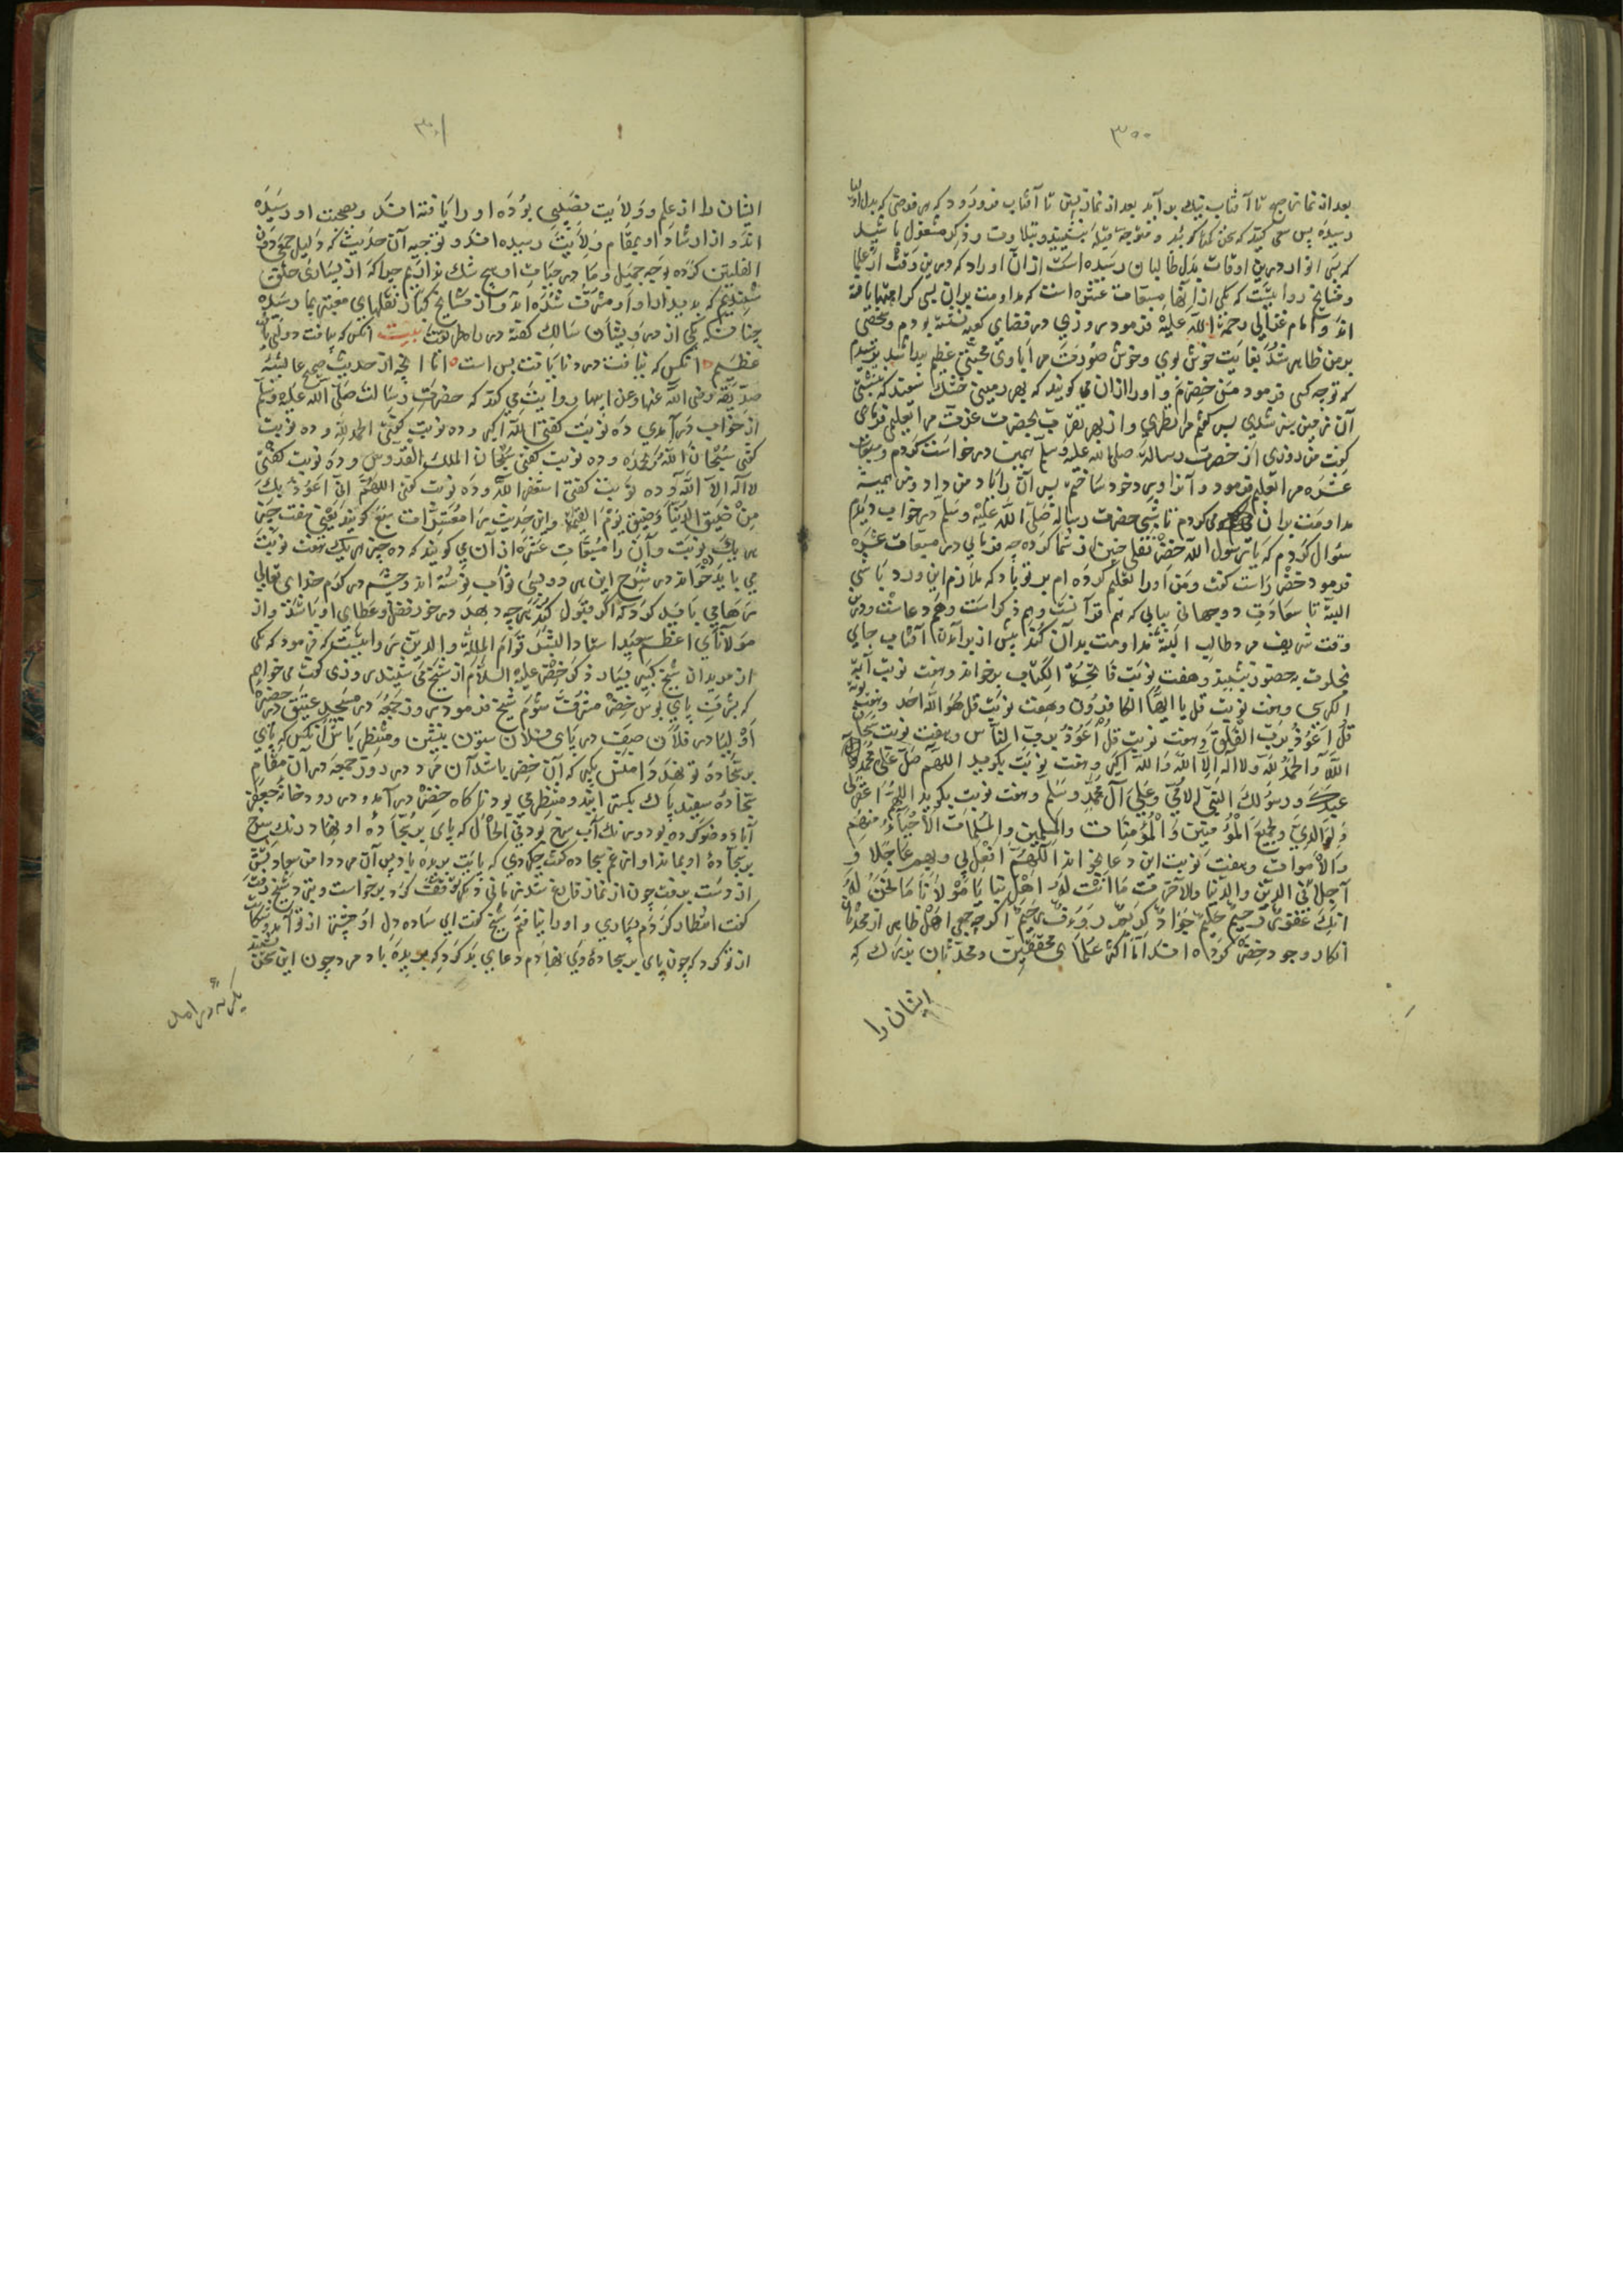 ٣٠٠
بعد از نماز صبح تا آفتاب نیك بر آید بعد از نماز پیشین تا آفتاب فرو رود که هر فرصتی که بدل اولیا
رسیده پس سعی کنید که سخن کم گویید و متوجه قبله بنشینید و بتلاوت و ذکر مشغول باشید
که بسی انوار درین اوقات بدل طالبان رسیده است از آن اوراد که درین وقت از علما
و مشایخ روایتست که یکی از آنها مسبعات عشره است که مداومت بر آن بسی کرامتها یافته
اند و امام غزالی رحمة الله علیه فرمود روزی در فضای کعبه نشسته بودم و شخصی
بر من ظاهر شد بغایت خوش بوی و خوش صورت مرا با وی محبتی عظیم پیدا شد پرسیدم
که تو چه کسی فرمود من خضرم و او را از آن می گویند که بهر زمینی خشك
آن زمین سبز شدی پس گفتم مرا نظری و از بهر تقرب بحضرت عزت مرا تعلیم فرمای
گفت من روزی از حضرت رسالة صلی الله علیه وسلم همین درخواست کردم و مسبعات
عشره مرا تعلیم فرمود و آنرا ورد خود ساختم پس آن را یاد من داد و من همیشه
مداومت بر آن می کردم تا شبی حضرت رسالة صلی الله علیه وسلم در خواب دیدم
سؤال کردم که یا رسول الله خضر نقلی چنین از شما کرده چه فرمایی در مسبعات عشره
فرمود خضر راست گفت و من او را تعلیم کرده ام بر تو باد که ملازم این ورد باشی
البته تا سعادت دو جهانی بیابی که هم قرآنست و هم ذکر است و هم دعاست و درین
وقت شریف مرد طالب البته مداومت بدان کند پیش از بر آمدن آفتاب جای
بخلوت بحضور بنشیند و هفت نوبت فاتحة الکتاب بخواند و هفت نوبت آیة
الکرسی و هفت نوبت قل یا ایها الکافرون و هفت نوبت قل هو الله احد و هفت نوبت
قل اعوذ برب الفلق و هفت نوبت قل اعوذ برب الناس و هفت نوبت سبحان
الله و الحمد لله و لا اله الا الله و الله اکبر و هفت نوبت بگوید اللهم صل علی محمد
عبدك و رسولك النبی الامی و علی آل محمد وسلم و هفت نوبت بگوید اللهم اغفر لی
و لوالدی و لجمیع المؤمنین و المؤمنات و المسلمین و المسلمات الاحیاء منهم
و الاموات و هفت نوبت این دعا بخواند اللهم افعل بی و بهم عاجلا و
آجلا فی الدین و الدنیا و الاخرة ما انت له اهل بنا یا مولانا ما نحن له
انك غفور رحیم حلیم جواد کریم رؤف رحیم اگر چه جمعی اهل ظاهر از محدثان
انکار وجود خضر کرده اند اما اکثر علمای محققین و محدثان بزرك که
ایشان را
٣٠١
ایشان را از علم و ولایت نصیبی بوده او را یافته اند و بصحبت او رسیده
اند و از ارشاد او بمقام ولایت رسیده اند و توجیه آن حدیث که دلیل
کرده وجه جمیل و ما در حیات او هیچ شك نداریم چرا که از بسیاری خلق
شنیدیم که بدیدار او مشرف شده اند و از مشایخ کبار نقلهای معتبر بما رسیده
چنانکه یکی از درویشان سالك گفته در نایافت بیت آنکس که بیافت دولتی یافت
عظیم آنکس که نیافت درد نایافت بس است اما آنچه از حدیث صحیح عایشه
صدیقه رضی الله عنها و عن ابیها روایت می کند که حضرت رسالت صلی الله علیه وسلم
از خواب در آمدی ده نوبت گفتی الله اکبر و ده نوبت گفتی الحمد لله و ده نوبت
گفتی سبحان الله و بحمده و ده نوبت گفتی سبحان الملك القدوس و ده نوبت گفتی
لا اله الا الله و ده نوبت گفتی استغفر الله و ده نوبت گفتی اللهم انی اعوذ بك
من ضیق الدنیا و ضیق یوم القیمة و این حدیث را معشرات سبع گویند یعنی هفت چیز
هر یك ده نوبت و آن را مسبعات عشره از آن می گویند که ده چیز هر یك هفت نوبت
می باید خواند در شرح این هر دو بسی ثواب نوشته اند و چشم در کرم خدای تعالی
می باید کرد که اگر قبول کند هر چه دهد در خور فضل و عطای او باشد و از
مولانای اعظم سعید استاد البشر قوام الملة و الدین روایتست که فرمود که یکی
از مریدان شیخ کبیر بسیار ذکر خضر علیه السلام از شیخ می شنید روزی گفت می خواهم
که بشرف پای بوس خضر مشرف شوم شیخ فرمود روز جمعه در مسجد عتیق در حضرت
اولیا در فلان صف در پای فلان ستون بنشین و منتظر باش آنکس که پای
بر سجاده تو نهد دامنش بگیر که آن خضر باشد آن مرد در روز جمعه در آن مقام
سجاده سفید پاك بگسترانید و منتظر می بود ناگاه خضر در آمد و در رودخانه جعفر
آباد وضو کرده بود در تك آب سرخ بود فی الحال که پای بر سجاده او نهاد رنك سرخ
بر سجاده او بماند او از غم سجاده گفت چکردی که پایت بریده باد پس آن مرد دامن سجاد
از دست برفت چون از نماز فارغ شدند زمانی دیگر توقف کرد برخواست و پیش شیخ رفت
گفت انتظار کردم بسیاری و او را نیافتم شیخ گفت ای ساده دل او پیش از تو آمد و شکایت
از تو کرد که چون پای بر سجاده وی نهادم دعای بد کرد که بریده باد مرد چون این سخن بشنید